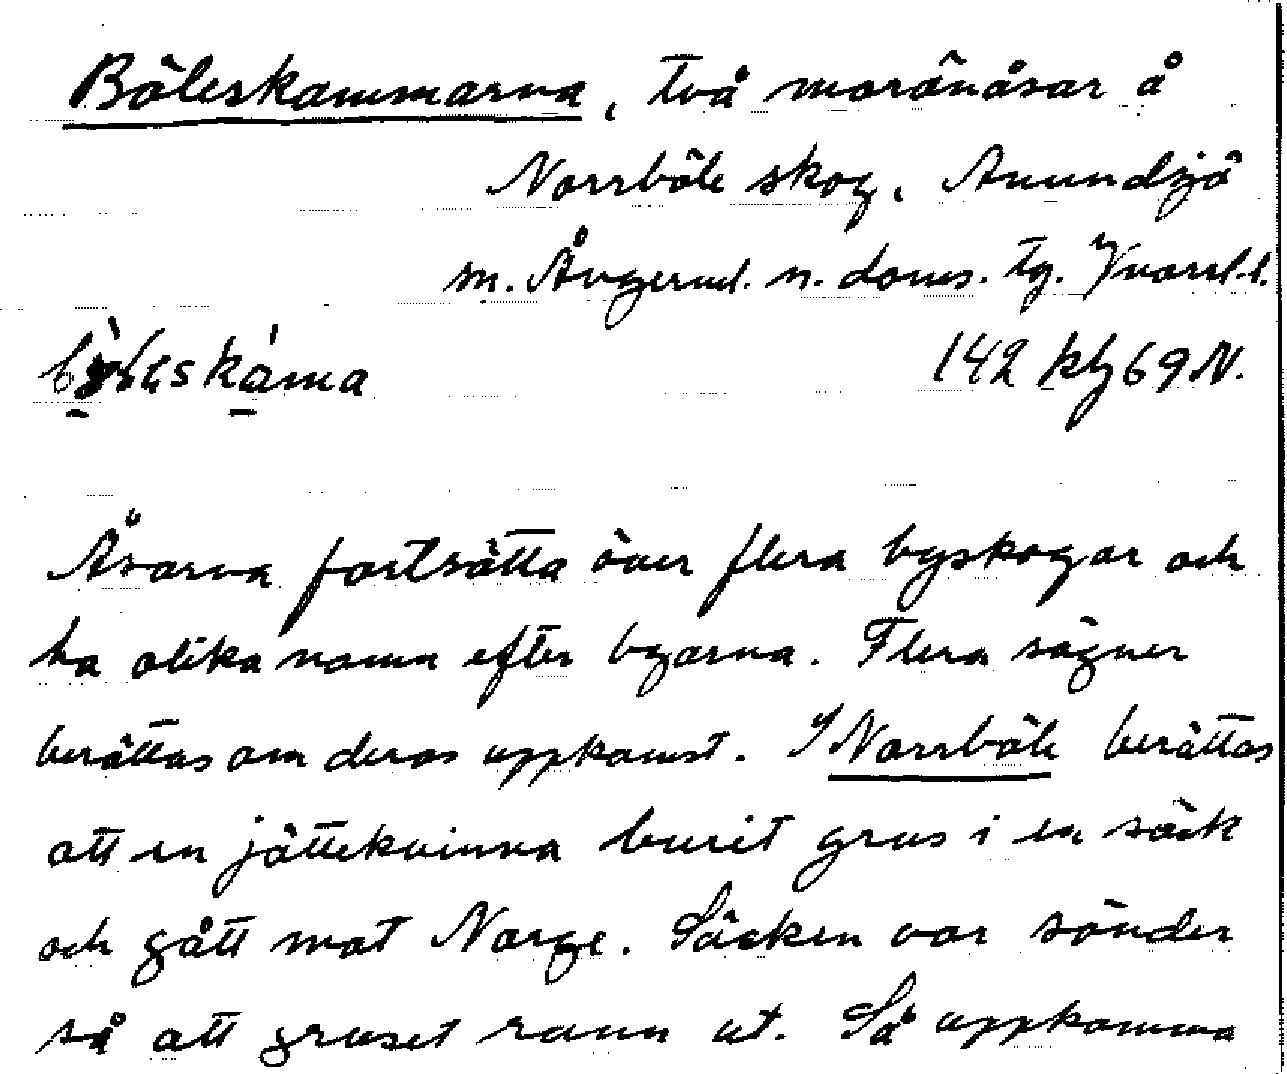 Böleskammarna, två moränåsar å
Norrböle skog, Anundsjö
m. Ångerml. n. doms. tg. Yvarsl. l.
142 kly 69 N.
Åsarna fortsätta över flera byskogar och
ha olika namn efter byarna. Flera sägner
berättas om deras uppkomst. I Norrböle berättas
att en jättekvinna burit grus i en säck
och gått mot Norge. Säcken var sönder
så att gruset rann ut. Så uppkommo